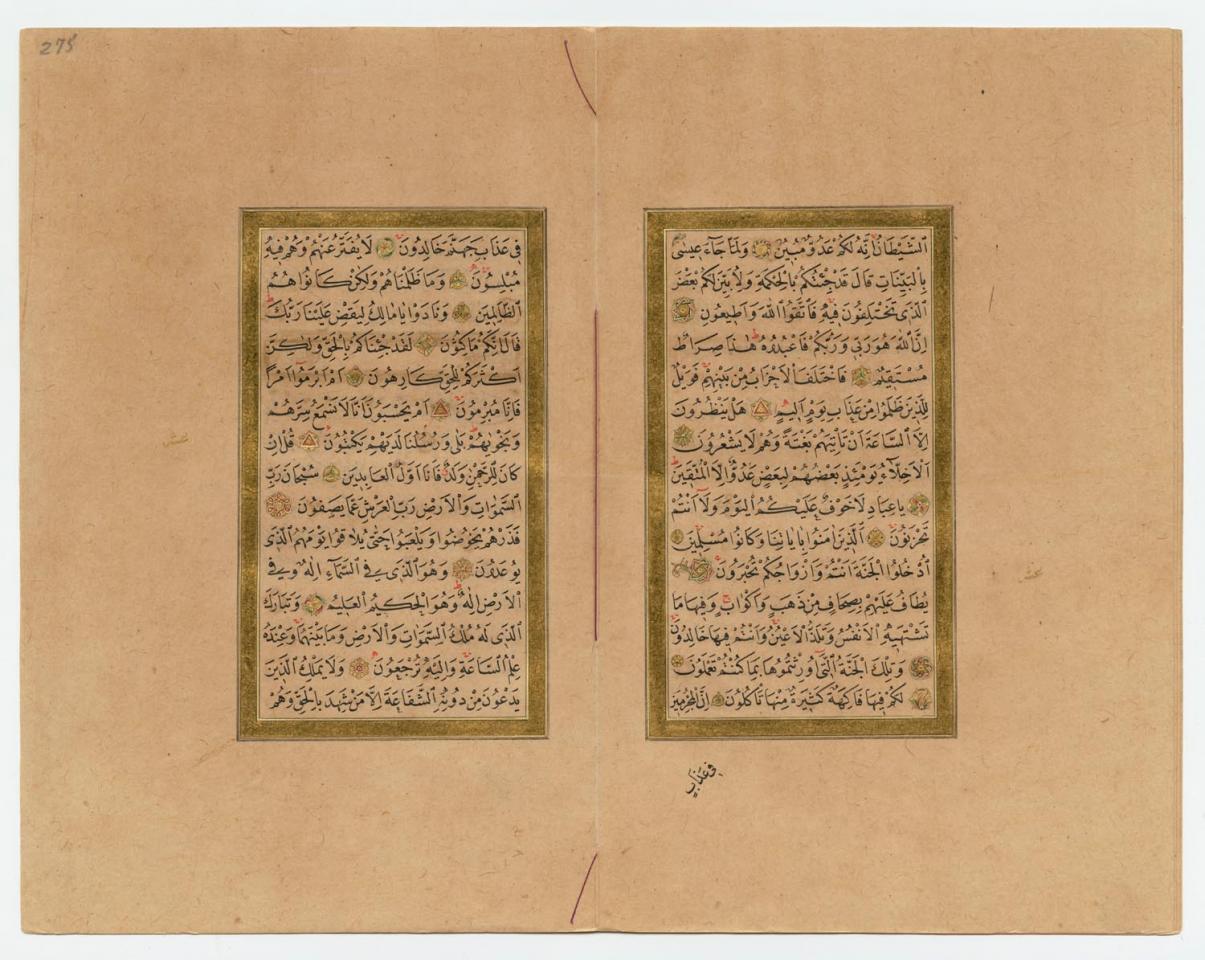 الشَّيْطَانُ اِنَّهُ لَكُمْ عَدُوٌّ مُبِينٌ وَلَمَّا جَآءَ عِيسٰى
بِالْبَيِّنَاتِ قَالَ قَدْ جِئْتُكُمْ بِالْحِكْمَةِ وَلِاُبَيِّنَ لَكُمْ بَعْضَ
الَّذِى تَخْتَلِفُونَ فِيهِ فَاتَّقُوا اللّٰهَ وَاَطِيعُونِ
اِنَّ اللّٰهَ هُوَ رَبِّى وَرَبُّكُمْ فَاعْبُدُوهُ هٰذَا صِرَاطٌ
مُسْتَقِيمٌ فَاخْتَلَفَ الْاَحْزَابُ مِنْ بَيْنِهِمْ فَوَيْلٌ
لِلَّذِينَ ظَلَمُوا مِنْ عَذَابِ يَوْمٍ اَلِيمٍ هَلْ يَنْظُرُونَ
اِلَّا السَّاعَةَ اَنْ تَاْتِيَهُمْ بَغْتَةً وَهُمْ لَا يَشْعُرُونَ
اَلْاَخِلَّاءُ يَوْمَئِذٍ بَعْضُهُمْ لِبَعْضٍ عَدُوٌّ اِلَّا الْمُتَّقِينَ
يَا عِبَادِ لَا خَوْفٌ عَلَيْكُمُ الْيَوْمَ وَلَآ اَنْتُمْ
تَحْزَنُونَ اَلَّذِينَ اٰمَنُوا بِاٰيَاتِنَا وَكَانُوا مُسْلِمِينَ
اُدْخُلُوا الْجَنَّةَ اَنْتُمْ وَاَزْوَاجُكُمْ تُحْبَرُونَ
يُطَافُ عَلَيْهِمْ بِصِحَافٍ مِنْ ذَهَبٍ وَاَكْوَابٍ وَفِيهَا مَا
تَشْتَهِيهِ الْاَنْفُسُ وَتَلَذُّ الْاَعْيُنُ وَاَنْتُمْ فِيهَا خَالِدُونَ
وَتِلْكَ الْجَنَّةُ الَّتِى اُورِثْتُمُوهَا بِمَا كُنْتُمْ تَعْمَلُونَ
لَكُمْ فِيهَا فَاكِهَةٌ كَثِيرَةٌ مِنْهَا تَاْكُلُونَ اِنَّ الْمُجْرِمِينَ
فِى عَذَابِ
275
فِى عَذَابِ جَهَنَّمَ خَالِدُونَ لَا يُفَتَّرُ عَنْهُمْ وَهُمْ فِيهِ
مُبْلِسُونَ وَمَا ظَلَمْنَاهُمْ وَلٰكِنْ كَانُوا هُمُ
الظَّالِمِينَ وَنَادَوْا يَا مَالِكُ لِيَقْضِ عَلَيْنَا رَبُّكَ
قَالَ اِنَّكُمْ مَاكِثُونَ لَقَدْ جِئْنَاكُمْ بِالْحَقِّ وَلٰكِنَّ
اَكْثَرَكُمْ لِلْحَقِّ كَارِهُونَ اَمْ اَبْرَمُوٓا اَمْرًا
فَاِنَّا مُبْرِمُونَ اَمْ يَحْسَبُونَ اَنَّا لَا نَسْمَعُ سِرَّهُمْ
وَنَجْوٰيهُمْ بَلٰى وَرُسُلُنَا لَدَيْهِمْ يَكْتُبُونَ قُلْ اِنْ
كَانَ لِلرَّحْمٰنِ وَلَدٌ فَاَنَا اَوَّلُ الْعَابِدِينَ سُبْحَانَ رَبِّ
السَّمٰوَاتِ وَالْاَرْضِ رَبِّ الْعَرْشِ عَمَّا يَصِفُونَ
فَذَرْهُمْ يَخُوضُوا وَيَلْعَبُوا حَتّٰى يُلَاقُوا يَوْمَهُمُ الَّذِى
يُوعَدُونَ وَهُوَ الَّذِى فِى السَّمَآءِ اِلٰهٌ وَفِى
الْاَرْضِ اِلٰهٌ وَهُوَ الْحَكِيمُ الْعَلِيمُ وَتَبَارَكَ
الَّذِى لَهُ مُلْكُ السَّمٰوَاتِ وَالْاَرْضِ وَمَا بَيْنَهُمَا وَعِنْدَهُ
عِلْمُ السَّاعَةِ وَاِلَيْهِ تُرْجَعُونَ وَلَا يَمْلِكُ الَّذِينَ
يَدْعُونَ مِنْ دُونِهِ الشَّفَاعَةَ اِلَّا مَنْ شَهِدَ بِالْحَقِّ وَهُمْ